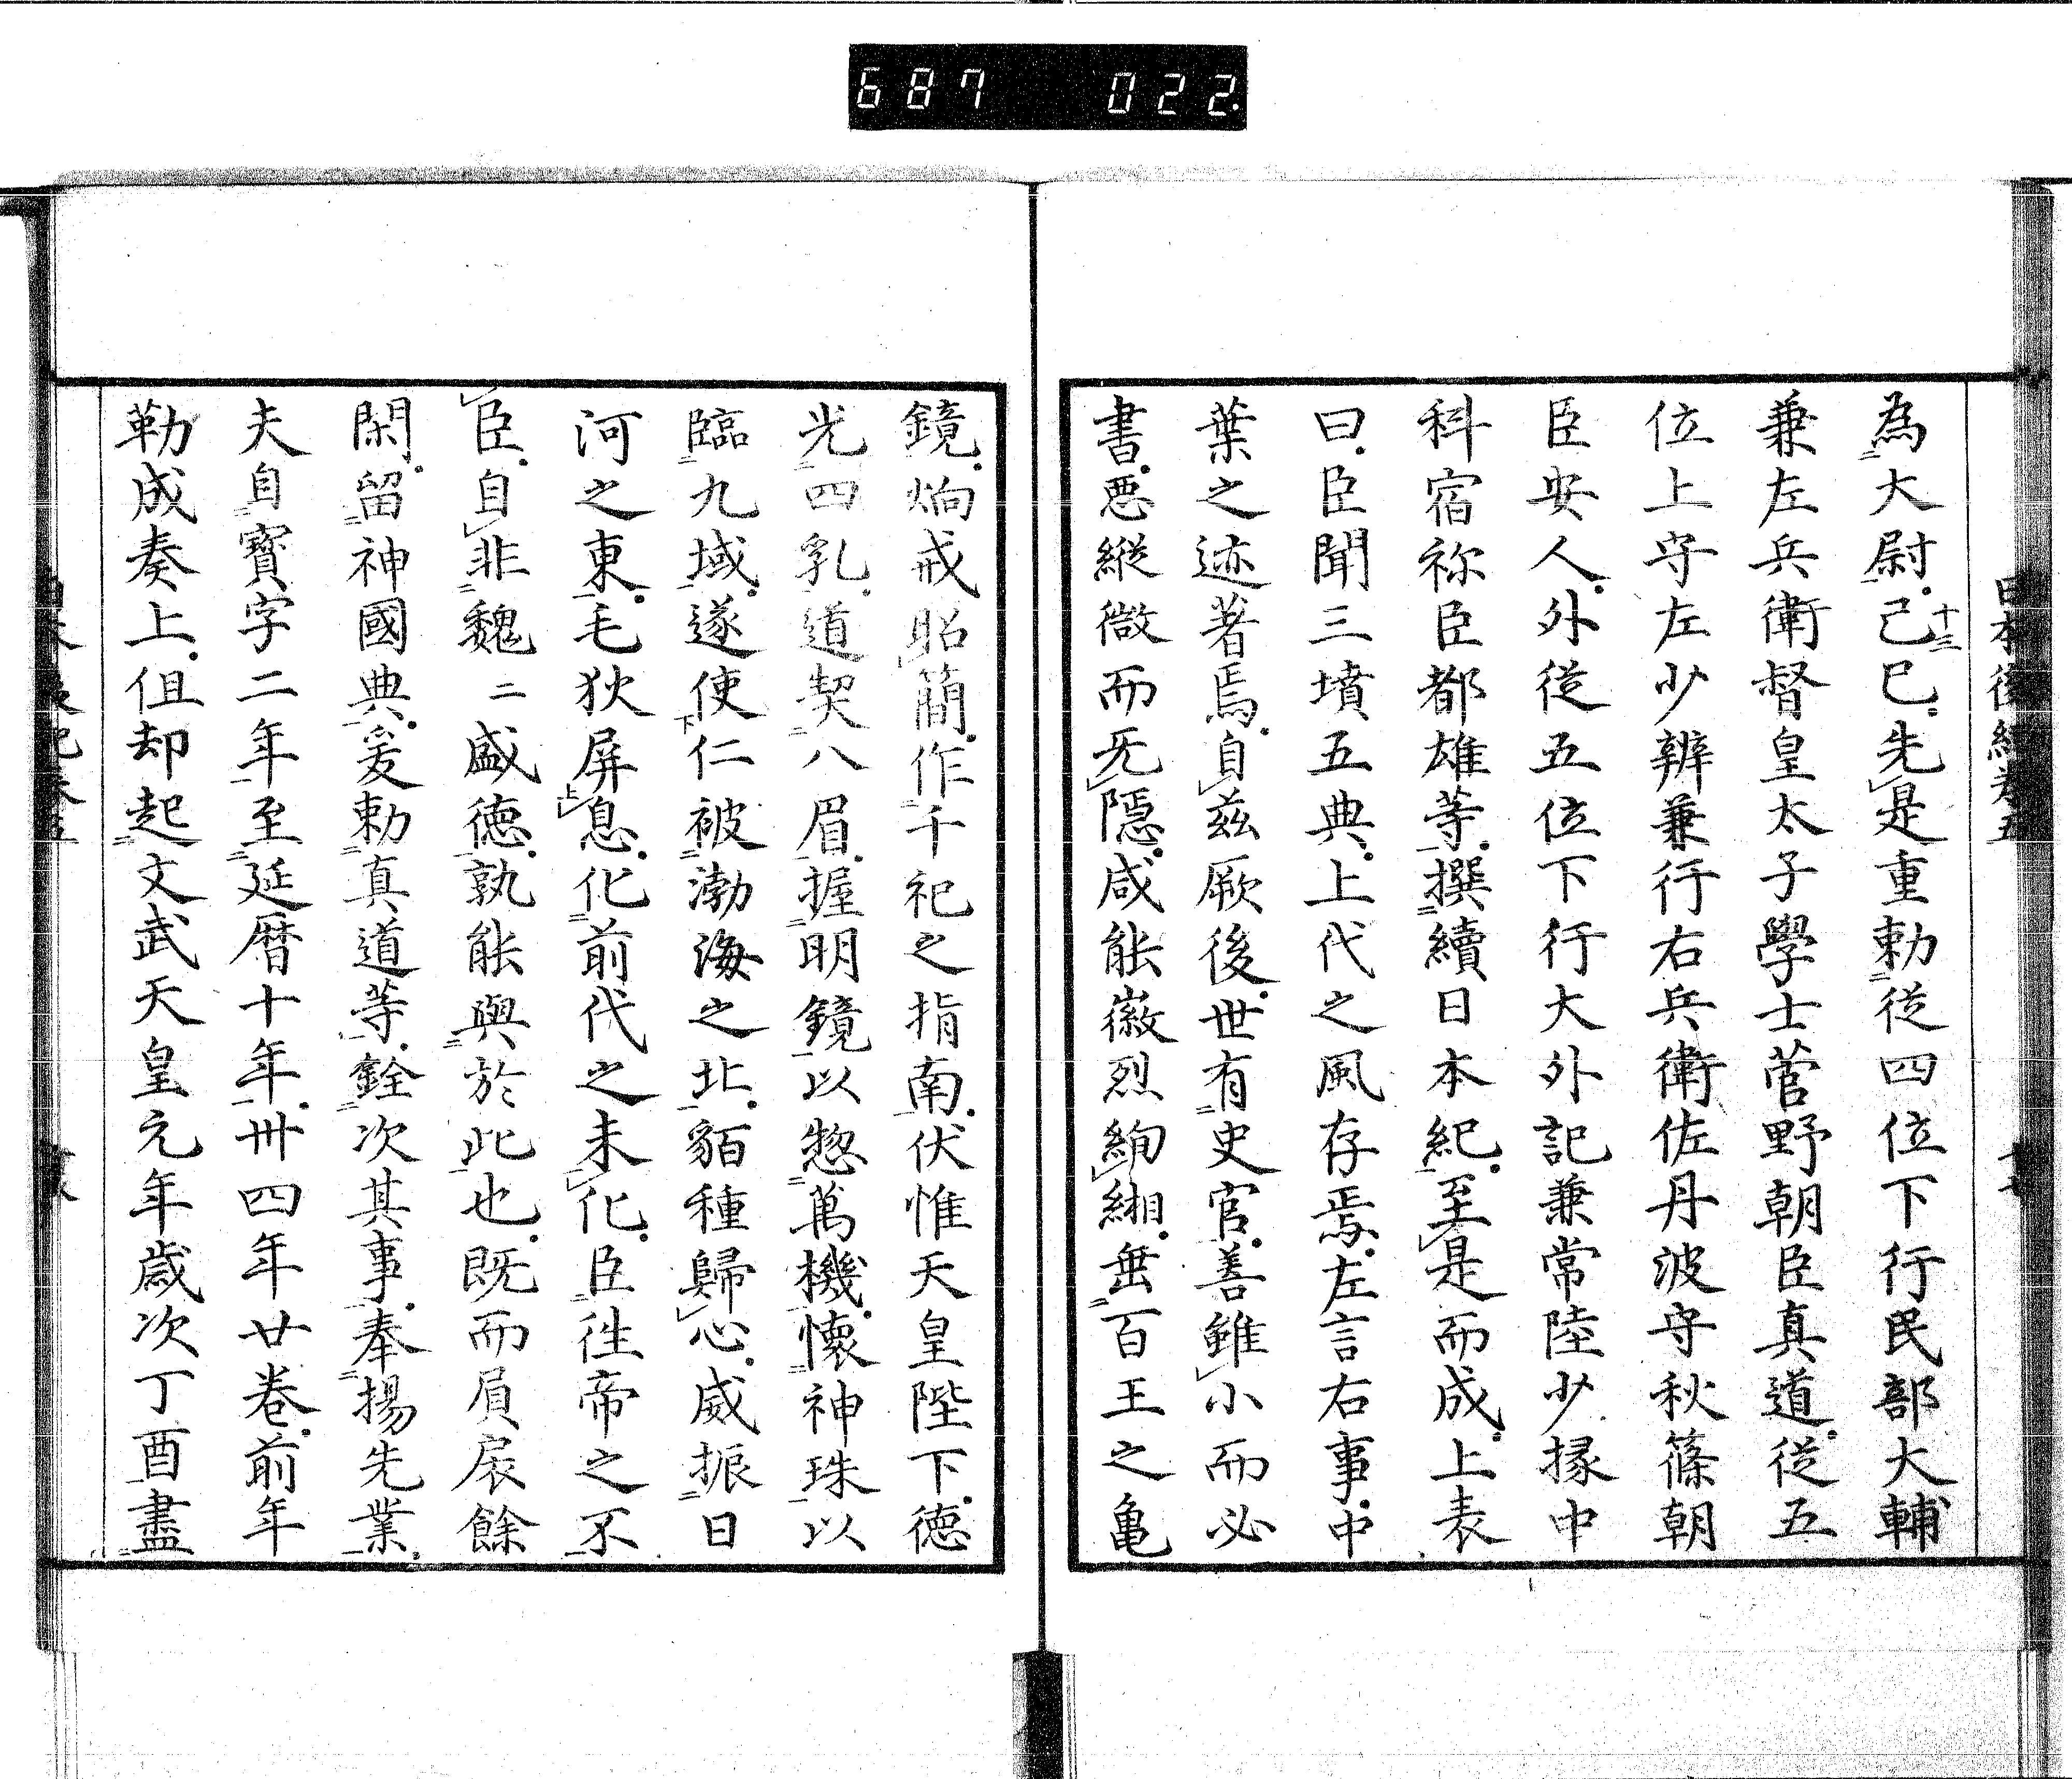 687 022.
為大尉己十三巳先是重勅従四位下行民部大輔
兼左兵衛督皇太子學士菅野朝臣真道従五
位上守左少辨兼行右兵衛佐丹波守秋篠朝
臣安人外従五位下行大外記兼常陸少掾中
科宿祢臣都雄等撰續日本紀至是而成上表
曰臣聞三墳五典上代之風存焉左言右事中
葉之迹著焉自茲厥後世有史官善雖小而必
書悪縦微而无隠咸能徽烈絢緗垂百王之亀
鏡炯戒昭簡作千祀之指南伏惟天皇陛下徳
光四乳道契八眉握明鏡以惣萬機懐神珠以
臨九域遂使仁被渤海之北貊種歸心威振日
河之東毛狄屏息化前代之未化臣徃帝之不
臣自非魏二盛徳孰能與於此也既而負扆餘
閑留神國典爰勅真道等銓次其事奉揚先業
夫自寳字二年至延暦十年卅四年廿巻前年
勒成奏上但却起文武天皇元年歳次丁酉盡